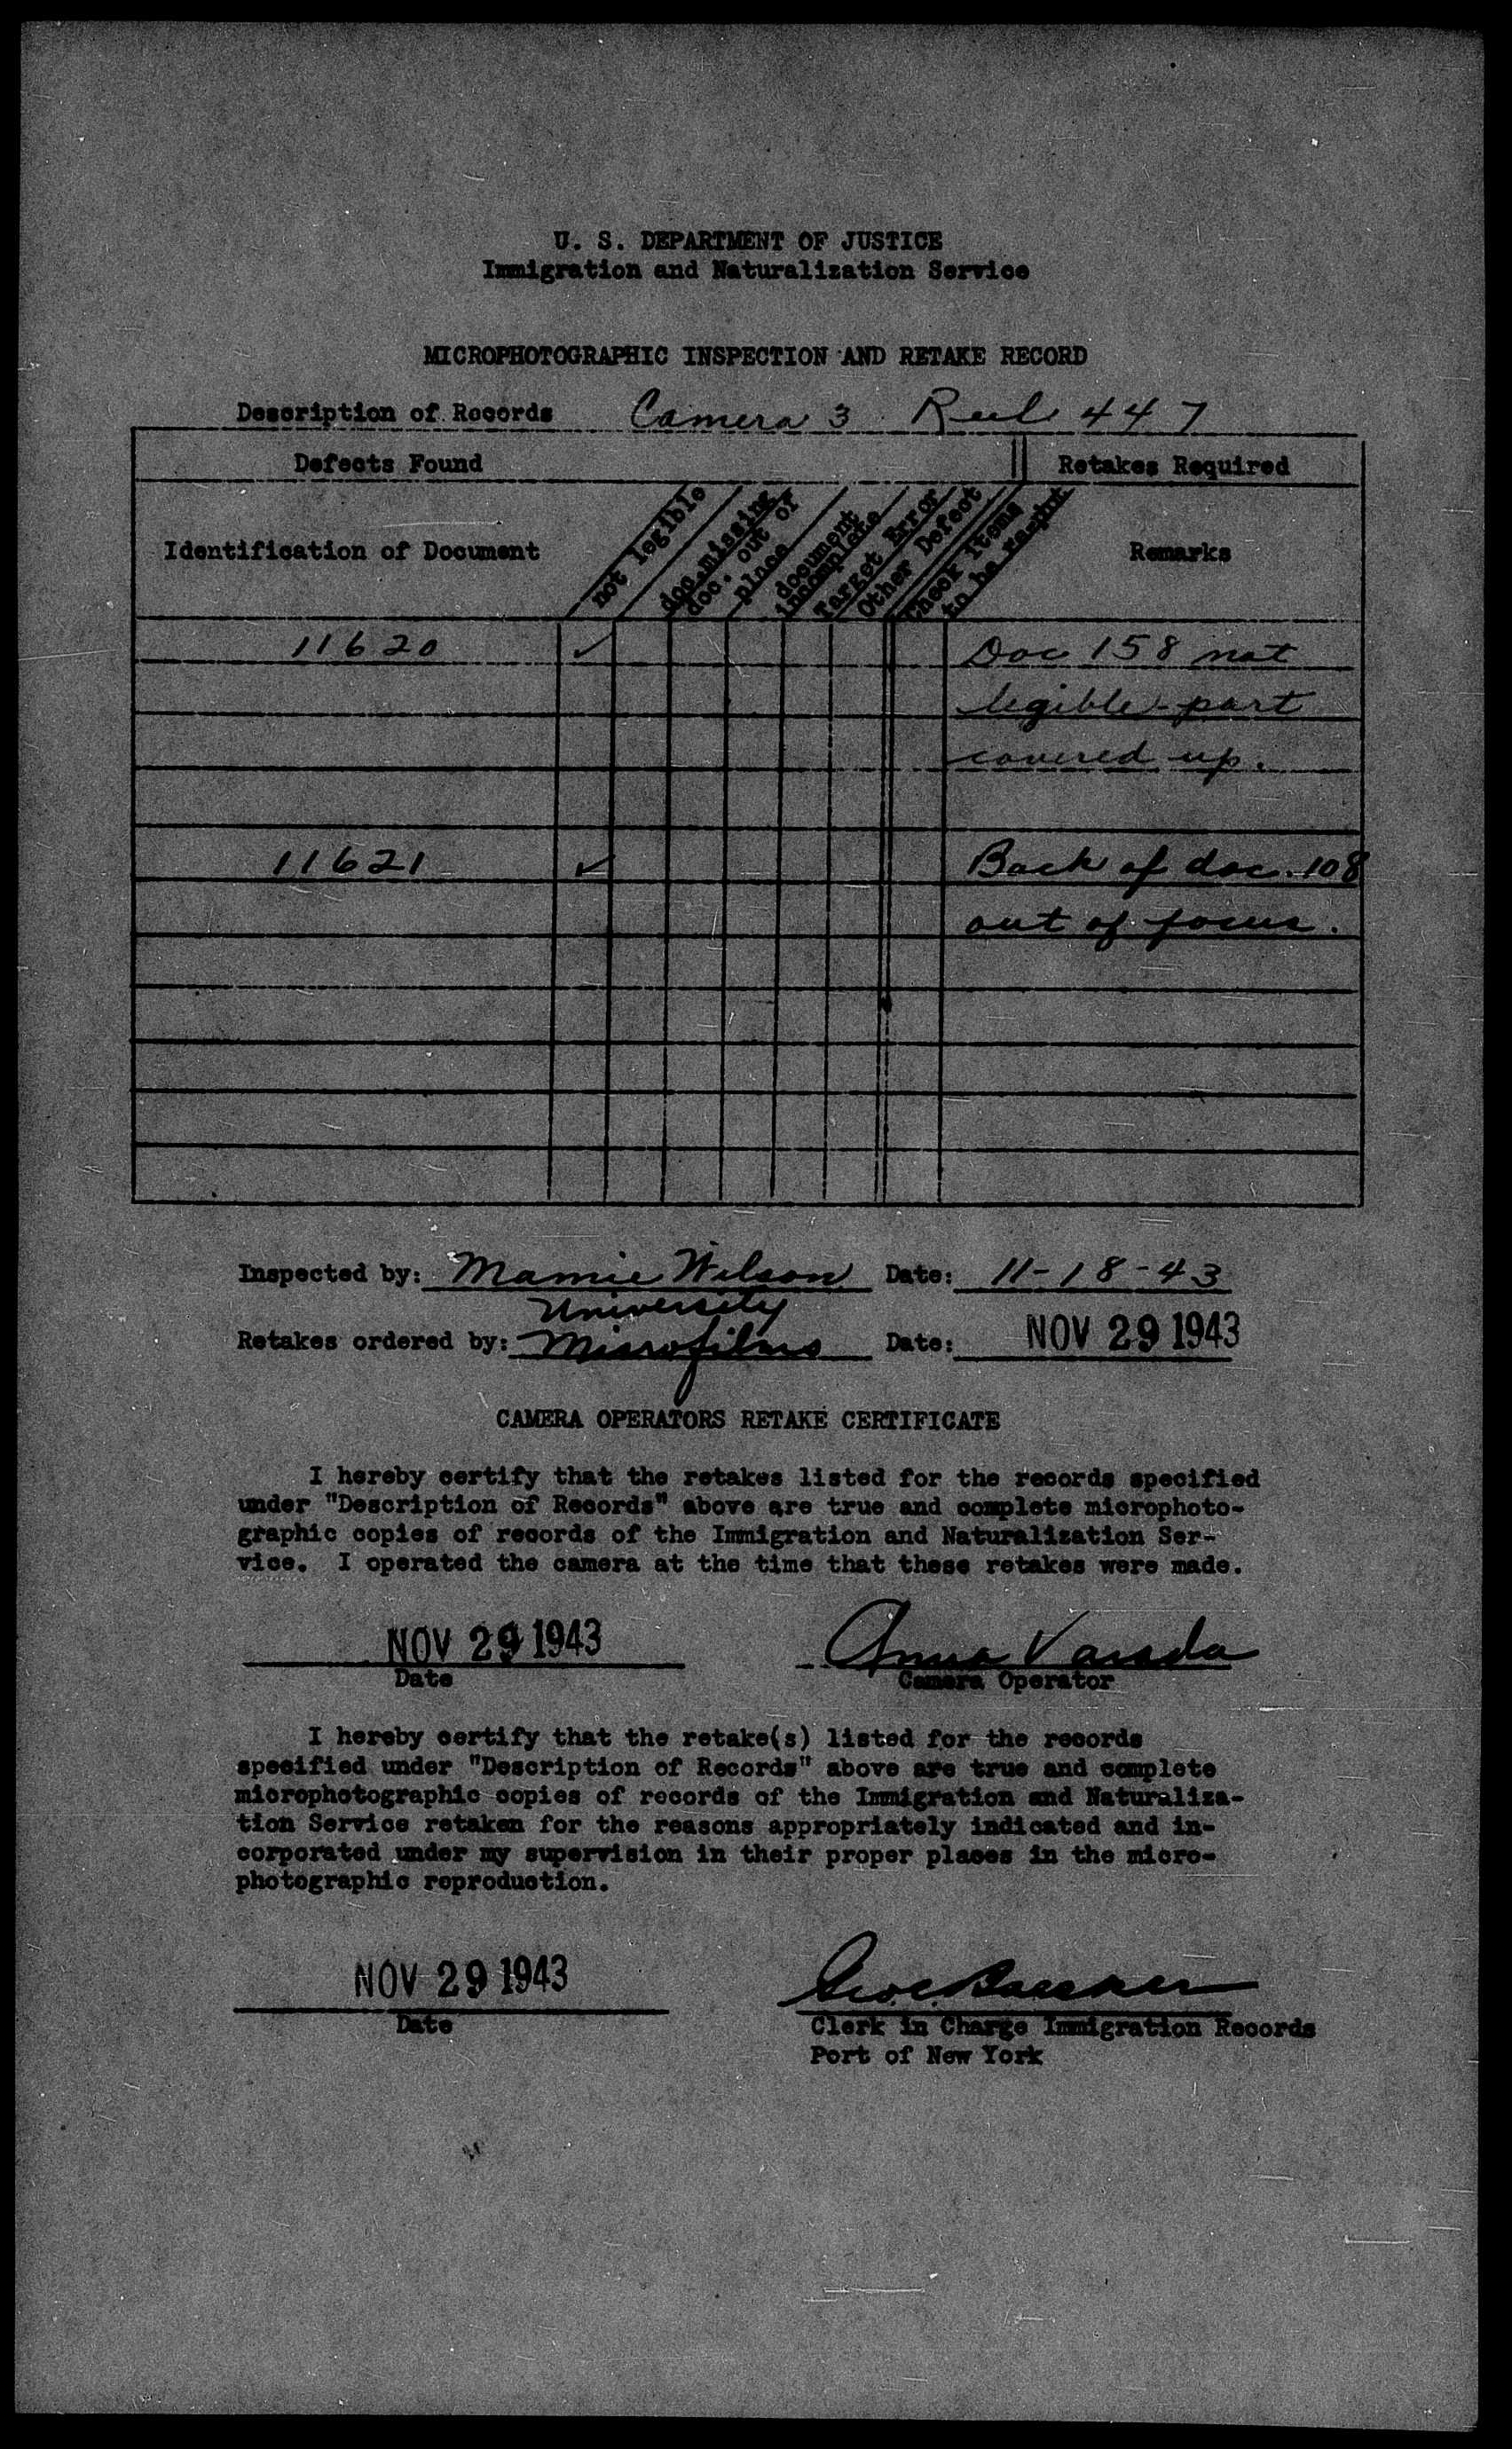 U. S. DEPARTMENT OF JUSTICE
Immigration and Naturalization Service
MICROPHOTOGRAPHIC INSPECTION AND RETAKE RECORD
Description of Records Camera 3 Reel 447
Defects Found Retakes Required
Identification of Document not legible doc. missing doc. out of place document incomplete Target Error Other Defect Check Items to be Remarks
11620 ✓ Doc 158 not
legible - part
covered up.
11621 ✓ Back of doc. 108
out of focus.
Inspected by: Mamie Wilson Date: 11-18-43
University
Retakes ordered by: Microfilms Date: NOV 29 1943
CAMERA OPERATORS RETAKE CERTIFICATE
I hereby certify that the retakes listed for the records specified
under "Description of Records" above are true and complete microphoto-
graphic copies of records of the Immigration and Naturalization Ser-
vice. I operated the camera at the time that these retakes were made.
NOV 29 1943 Anna
Date Camera Operator
I hereby certify that the retake(s) listed for the records
specified under "Description of Records" above are true and complete
microphotographic copies of records of the Immigration and Naturaliza-
tion Service retaken for the reasons appropriately indicated and in-
corporated under my supervision in their proper places in the micro-
photographic reproduction.
NOV 29 1943
Date Clerk in Charge Immigration Records
Port of New York